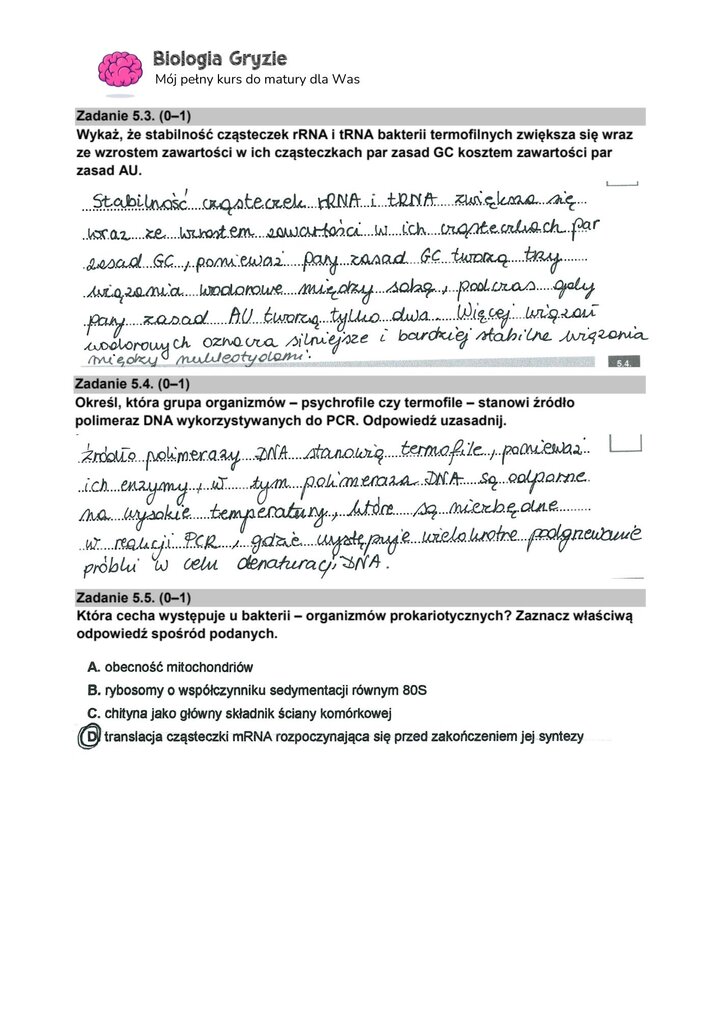 Biologia Gryzie
Mój pełny kurs do matury dla Was
Zadanie 5.3. (0–1)
Wykaż, że stabilność cząsteczek rRNA i tRNA bakterii termofilnych zwiększa się wraz
ze wzrostem zawartości w ich cząsteczkach par zasad GC kosztem zawartości par
zasad AU.
Stabilność cząsteczek rRNA i tRNA zwiększa się
wraz ze wzrostem zawartości w ich cząsteczkach par
zasad GC, ponieważ pary zasad GC tworzą trzy
wiązania wodorowe między sobą, podczas gdy
pary zasad AU tworzą tylko dwa. Więcej wiązań
wodorowych oznacza silniejsze i bardziej stabilne wiązania
między nukleotydami.
5.4.
Zadanie 5.4. (0–1)
Określ, która grupa organizmów – psychrofile czy termofile – stanowi źródło
polimeraz DNA wykorzystywanych do PCR. Odpowiedź uzasadnij.
Źródło polimerazy DNA stanowią termofile, ponieważ
ich enzymy, w tym polimeraza DNA są odporne
na wysokie temperatury, które są niezbędne
w reakcji PCR, gdzie występuje wielokrotne podgrzewanie
próbki w celu denaturacji DNA.
Zadanie 5.5. (0–1)
Która cecha występuje u bakterii – organizmów prokariotycznych? Zaznacz właściwą
odpowiedź spośród podanych.
A. obecność mitochondriów
B. rybosomy o współczynniku sedymentacji równym 80S
C. chityna jako główny składnik ściany komórkowej
D. translacja cząsteczki mRNA rozpoczynająca się przed zakończeniem jej syntezy